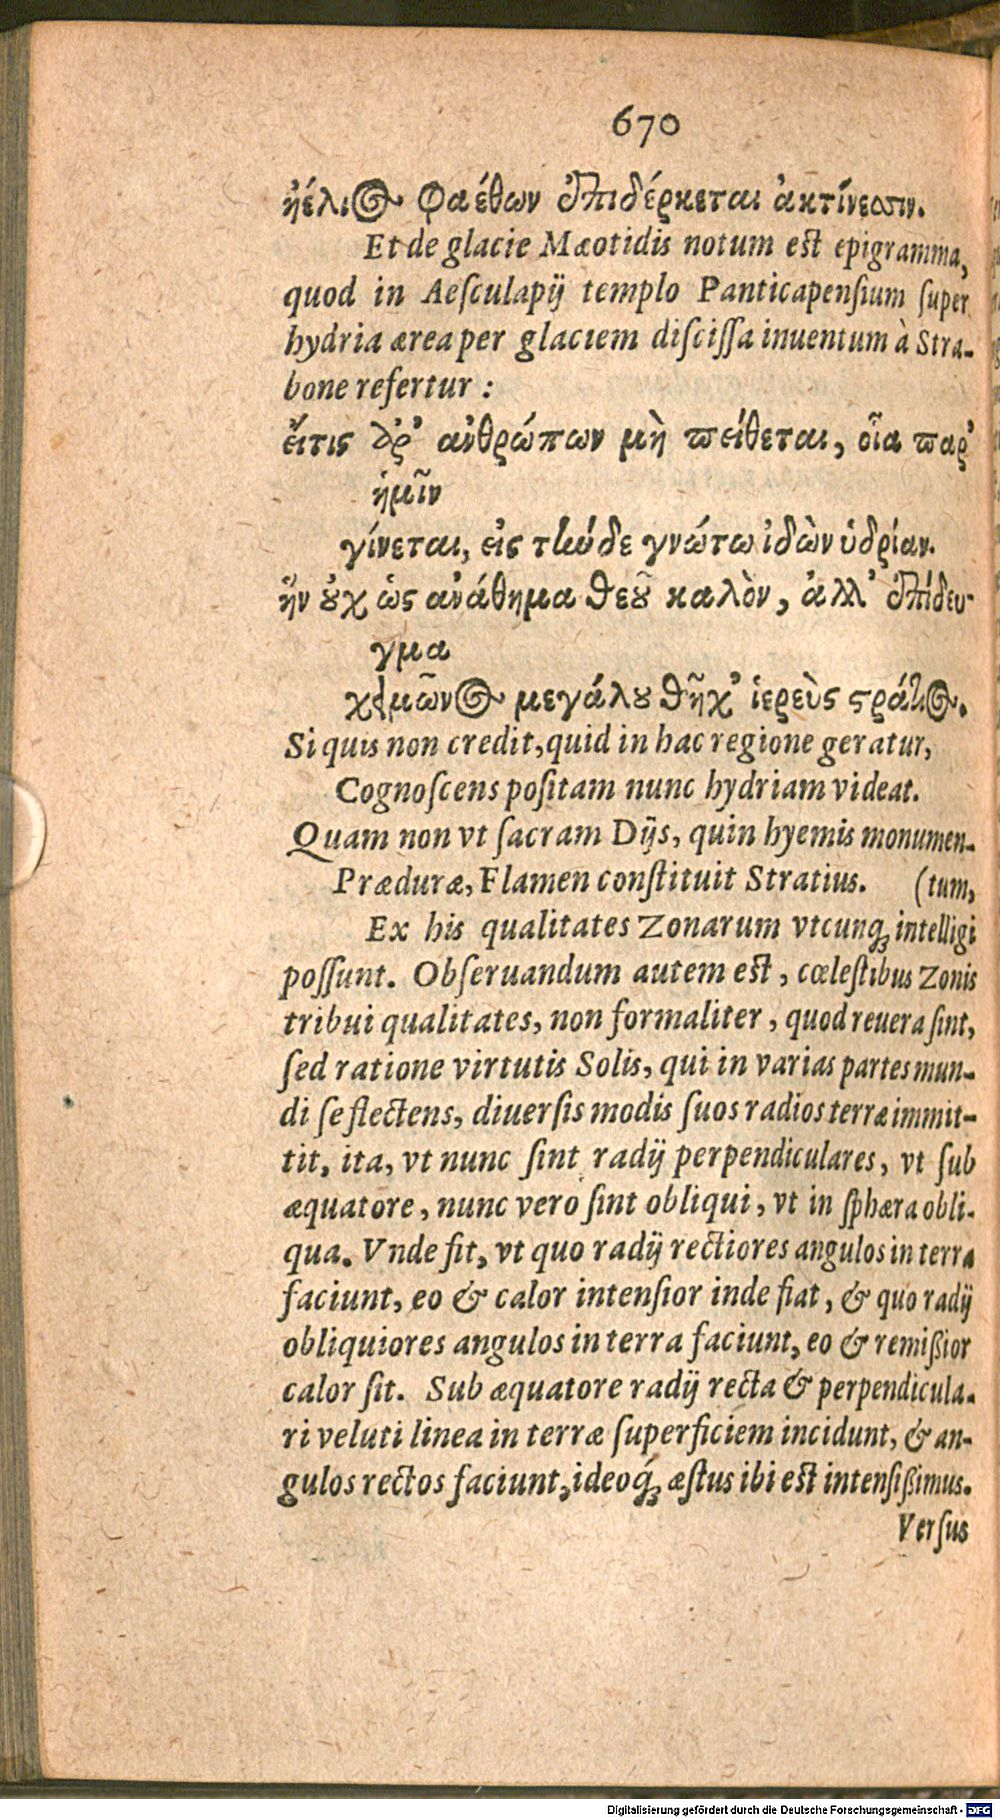 670
ἠέλιος φαέθων ἐπιδέρκεται ἀκτίνεσσιν.
Et de glacie Mæotidis notum est epigramma,
quod in Aesculapij templo Panticapensium super
hydria ærea per glaciem discissa inuentum à Stra-
bone refertur:
εἴτις ἄρ' ἀνθρώπων μὴ πείθεται, οἷα παρ'
ἡμῖν
γίνεται, εἰς τήνδε γνώτω ἰδὼν ὑδρίαν.
ἣν οὐχ ὡς ἀνάθημα θεοῦ καλὸν, ἀλλ' ἐπίδει-
γμα
χειμῶνος μεγάλου θῆχ' ἱερεὺς Στράτιος.
Si quis non credit, quid in hac regione geratur,
Cognoscens positam nunc hydriam videat.
Quam non vt sacram Dijs, quin hyemis monumen-
Prædura, Flamen constituit Stratius. (tum,
Ex his qualitates Zonarum vtcunq; intelligi
possunt. Obseruandum autem est, cœlestibus Zonis
tribui qualitates, non formaliter, quod reuera sint,
sed ratione virtutis Solis, qui in varias partes mun-
di se flectens, diuersis modis suos radios terræ immit-
tit, ita, vt nunc sint radij perpendiculares, vt sub
æquatore, nunc vero sint obliqui, vt in sphæra obli-
qua. Vnde fit, vt quo radij rectiores angulos in terra
faciunt, eo & calor intensior inde fiat, & quo radij
obliquiores angulos in terra faciunt, eo & remißior
calor sit. Sub æquatore radij recta & perpendicula-
ri veluti linea in terræ superficiem incidunt, & an-
gulos rectos faciunt, ideoq́; æstus ibi est intensißimus.
Versus
Digitalisierung gefördert durch die Deutsche Forschungsgemeinschaft - DFG